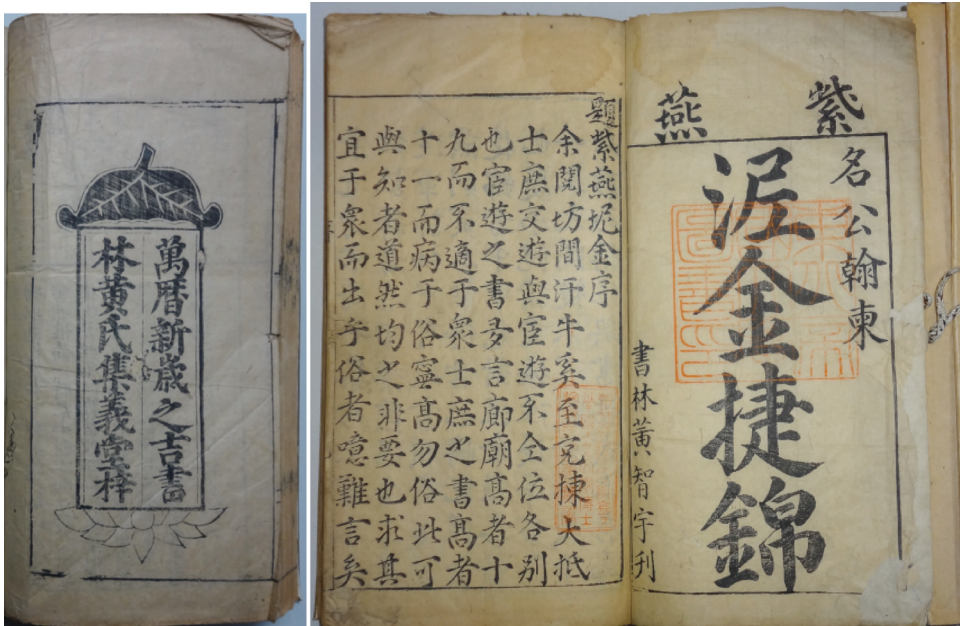 萬曆新歲之吉書
林黃氏集義堂梓
紫燕
名公翰柬
泥金捷錦
書林黃智宇刊
題紫燕坭金序
余閱坊間汗牛奚至充揀大抵
士庶交遊與宦遊不仝位各別
也宦遊之書多言廊廟高者十
九而不適于衆士庶之書高者
十一而病于俗寧高勿俗此可
與知者道然均之非要也求其
宜于衆而出乎俗者噫難言矣